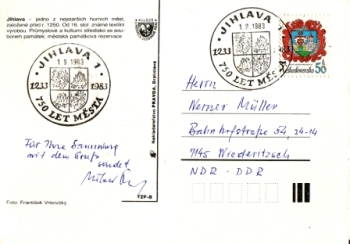 Jihlava – jedno z nejstarších horních měst,
založené před r. 1250. Od 16. stol. známé textilní
výrobou. Průmyslové a kulturní středisko se sou-
borem památek, městská památková rezervace
JIHLAVA 1
1.9.1983
1233 1983
750 LET MĚSTA
Für Ihre Sammlung
mit dem Gruß
sendet
Foto: František Vrbovský
Nakladatelstvo PRAVDA, Bratislava
JIHLAVA 1
1.9.1983
1233
750 LET MĚSTA
Československo 50
Herrn
Werner Müller
Bahnhofstraße 54, 24-14
7145 Wiederitzsch
NDR - DDR